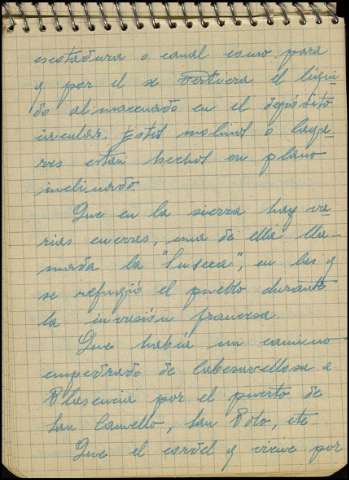 escotadura o canal como para
y por el se vertiera el líqui
do almacenado en el depósito
circular. Estos molinos o laga
res están hechos en plano
inclinado
Que en la sierra hay va
rias cuevas, una de ella lla
mada la "", en las q
se refugió el pueblo durante
la invasión francesa
Que había un camino
empedrado de Cabezavellosa a
Plasencia por el puerto de
San , San Polo, etc
Que el cordel q viene por